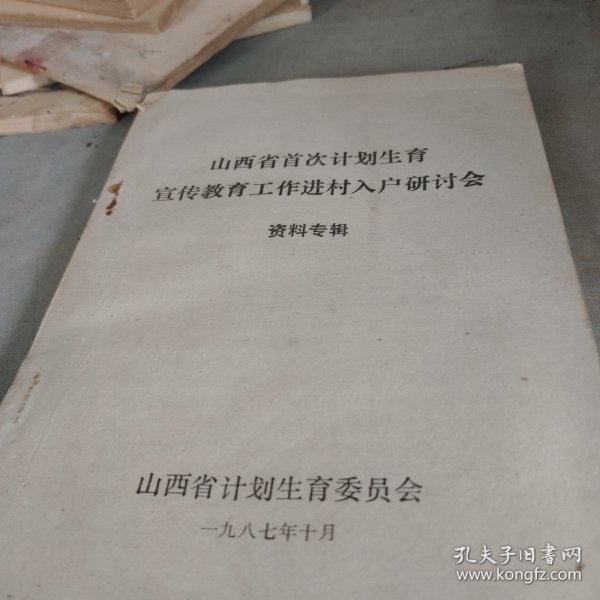 山西省首次计划生育
宣传教育工作进村入户研讨会
资料专辑
山西省计划生育委员会
一九八七年十月
孔夫子旧书网
www.kongfz.com